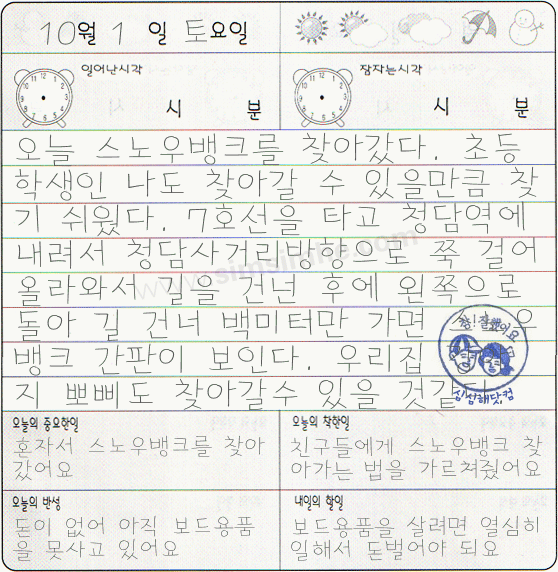 10월 1 일 토요일
일어난시각
잠자는시각
시 분
시 분
오늘 스노우뱅크를 찾아갔다. 초등
학생인 나도 찾아갈 수 있을만큼 찾
기 쉬웠다. 7호선을 타고 청담역에
내려서 청담사거리방향으로 쭉 걸어
올라와서 길을 건넌 후에 왼쪽으로
돌아 길 건너 백미터만 가면 스노우
뱅크 간판이 보인다. 우리집
지 뽀삐도 찾아갈수 있을 것같다.
참! 잘했어요
심심해닷컴
www.simsimhe.com
오늘의 중요한일
혼자서 스노우뱅크를 찾아
갔어요
오늘의 착한일
친구들에게 스노우뱅크 찾
아가는 법을 가르쳐줬어요
오늘의 반성
돈이 없어 아직 보드용품
을 못사고 있어요
내일의 할일
보드용품을 살려면 열심히
일해서 돈벌어야 되요